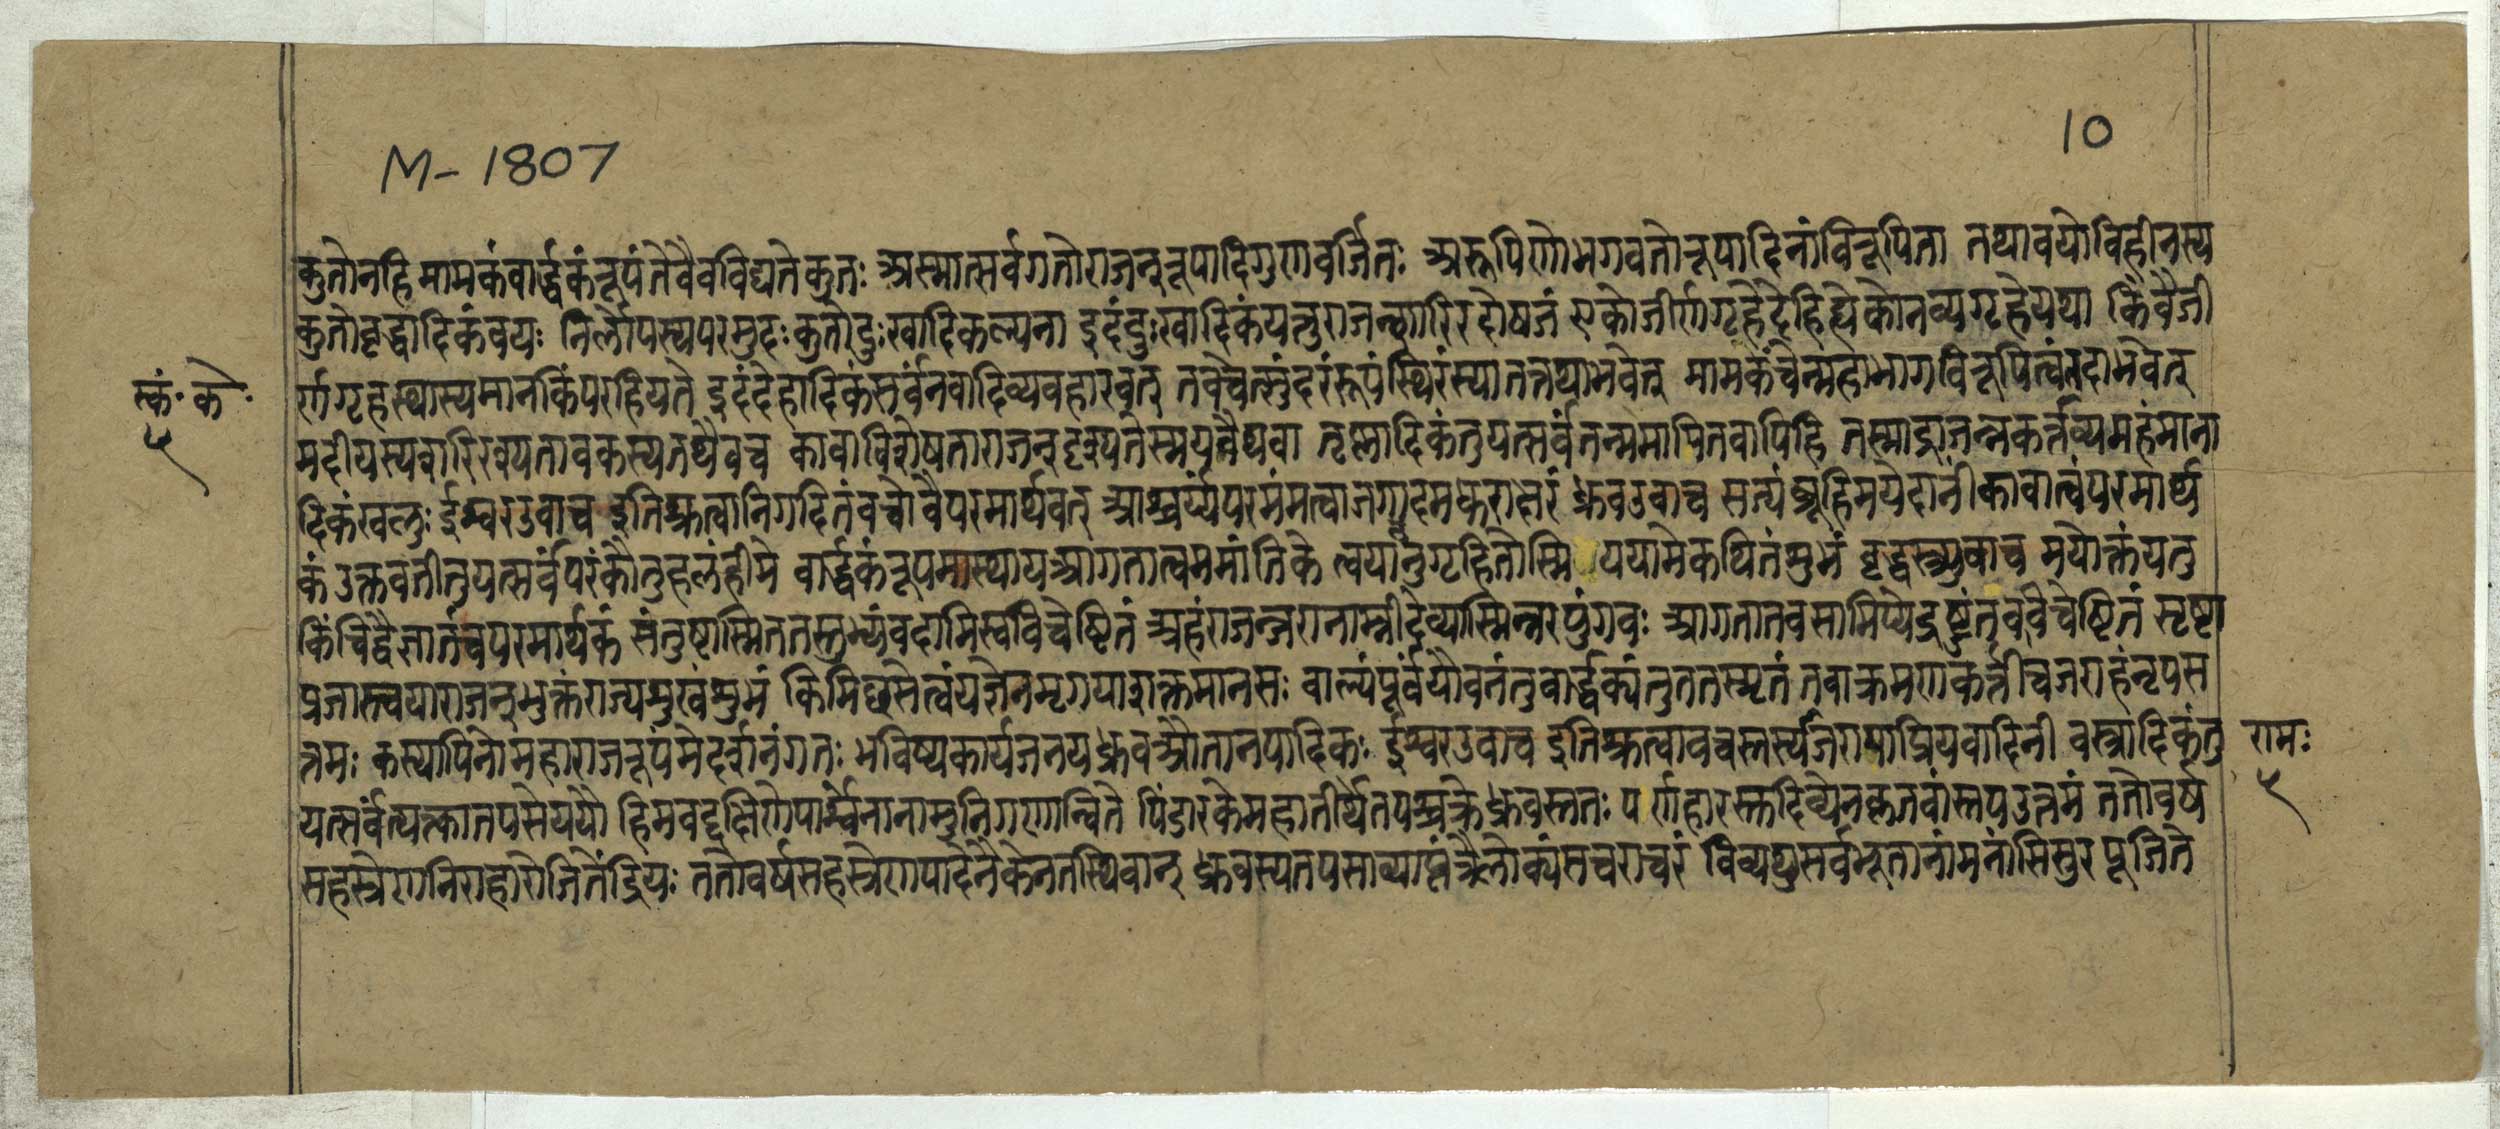 M-1807
10
कुतोनहि मामकंवार्द्धकंरूपंतेवैवविद्यतेकुतः अस्मात्सर्वगतोराजन्रूपादिगुणवर्जितः अरूपिणोभगवतोरूपादिनांविरूपिता तथावयोविहीनस्य
कुतोवृद्धादिकंवयः निर्लोपस्यपरमुहः कुतोदुःखादिकल्पना इदंदुःखादिकंयत्तुराजन्शारिरदोषजं एकोजीर्णगृहेदेहिह्येकोनव्यगृहेयथा किंवैजी
र्णगृहस्थास्यमानकिंपरहियते इदंदेहादिकंसर्वंनवादिव्यवहारवत् तवचेत्सुंदरंरूपंस्थिरंस्यातत्तथाभवेत् मामकंचेन्महाभागविरूपित्वंतदाभवेत्
स्कं॰ के॰
५
मदीयस्यशरिरस्यतावकस्यतथैवच कावाविशेषताराजन्दृश्यतेस्मयवैद्यवा तृष्णादिकंतुयत्सर्वंतन्ममापितवापिहि तस्माद्राजन्नकर्त्तव्यमहंमाना
दिकंखलुः ईश्वरउवाच इतिश्रुत्वानिगदितंवचोवैपरमार्थवत् आश्चर्य्यंपरमंमत्वाजगादमधुराक्षरं ध्रुवउवाच सत्यंब्रूहिमयेदानींकावात्वंपरमार्थ
कं उक्तवतीतुयत्सर्वंपरंकौतुहलंहीमे वार्द्धकंरूपमास्थायआगतात्वममांतिके त्वयानुगृहितोस्मि ययामेकथितंशुभं वृद्धस्त्र्युवाच मयोक्तंयतु
किंचिद्वैज्ञातंवपरमार्थकं संतुष्टास्मिततस्तुभ्यंवदामिस्वविचेष्टितं अहंराजन्जरानाम्नीदेव्यास्मिन्नरपुंगवः आगतातवसामिप्येद्रष्टुंतववैचेष्टितं सृष्टा
प्रजास्त्वयाराजन्भुक्तंराज्यसुखंशुभं किमिछसेत्वंयज्ञेनमृगयाशक्तमानसः बाल्यंपूर्वंयौवनंतुवार्द्धक्यंतुततस्मृतं तवाक्रमणकर्त्रीचजराहंनृपस
त्तमः कस्यापिनोमहाराजरूपंमेदर्शनंगतः भविष्यकार्यजनयध्रुवऔतानपादिकः ईश्वरउवाच इतिश्रुत्वावचस्तस्यजरायाप्रियवादिनी वस्त्रादिकंतु
रामः
५
यत्सर्वंत्यत्क्वातपसेययौ हिमवद्दक्षिणेपार्श्वेनानामुनिगणान्विते पिंडारकेमहातीर्थेतपश्चक्रेध्रुवस्ततः पर्णाहारस्तदिव्येनकृतवांस्तपउत्तमं ततोवर्ष
सहस्रेणनिराहारोजितेंद्रियः ततोवर्षसहस्रेणपादेनैकेनतस्थिवान् ध्रुवस्यतपसाव्याप्तंत्रैलोक्यंसचराचरं विव्यथुसर्वभूतानांमनांसिसुरपूजिते